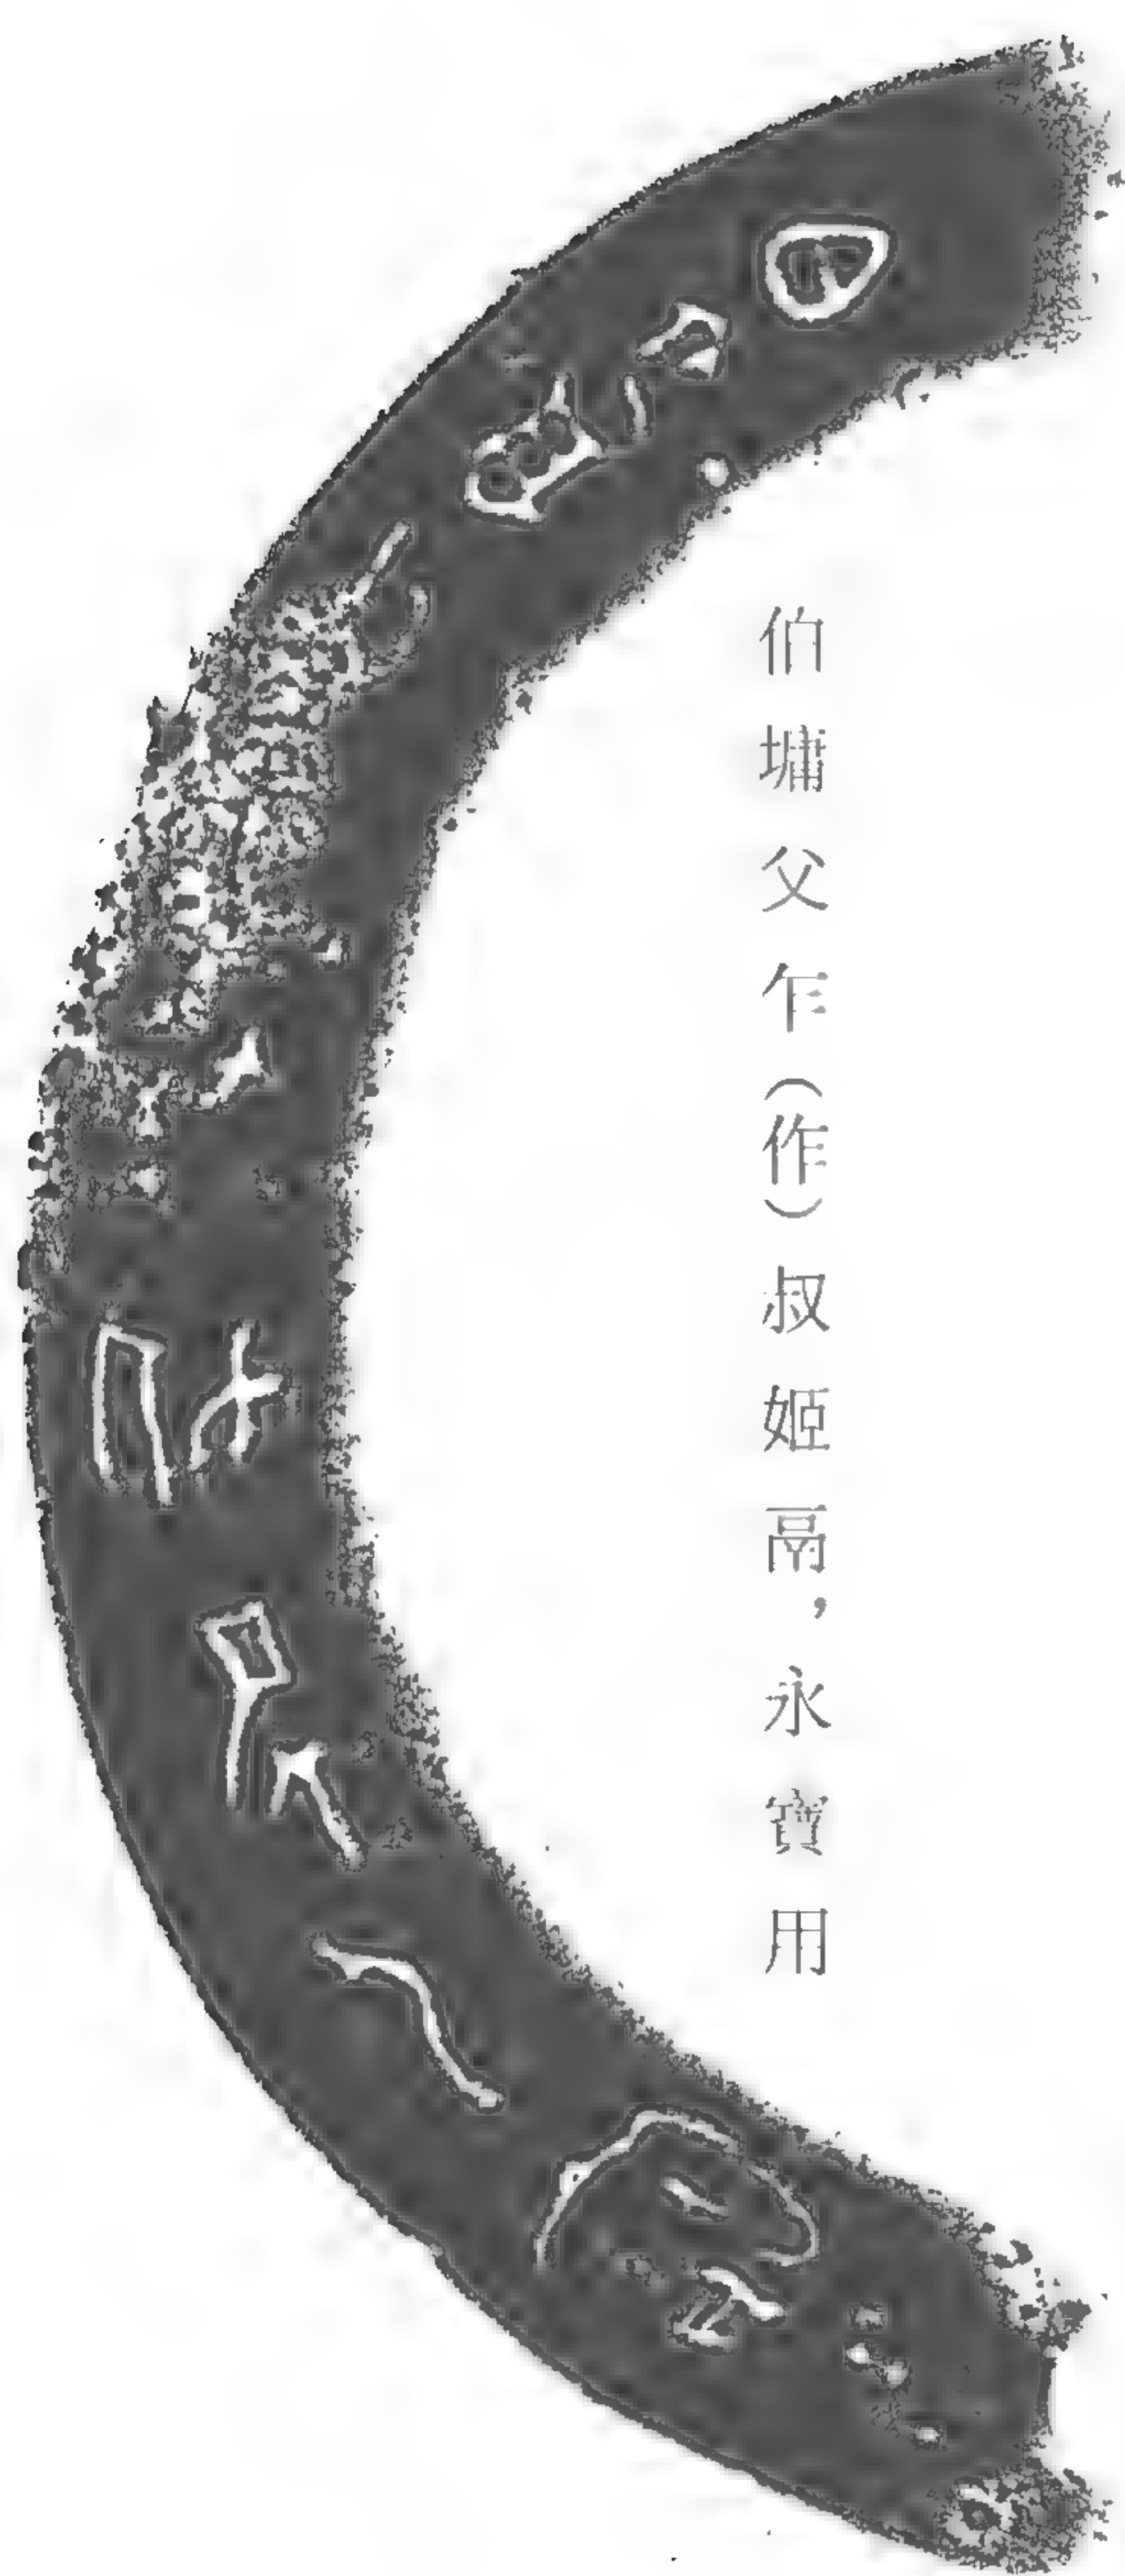 伯墉父乍（作）叔姬鬲，永寶用